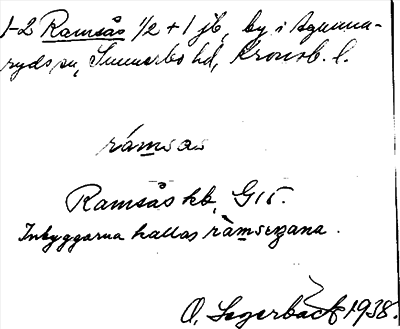 1-2 Ramsås 1/2 + 1 jb, by i Agunna-
ryds sn, Sunnerbo hd, Kronob. l.
råmsas
Ramsås hb, G15.
Inbyggarna kallas råmsezana.
O. Segerbäck 1938.